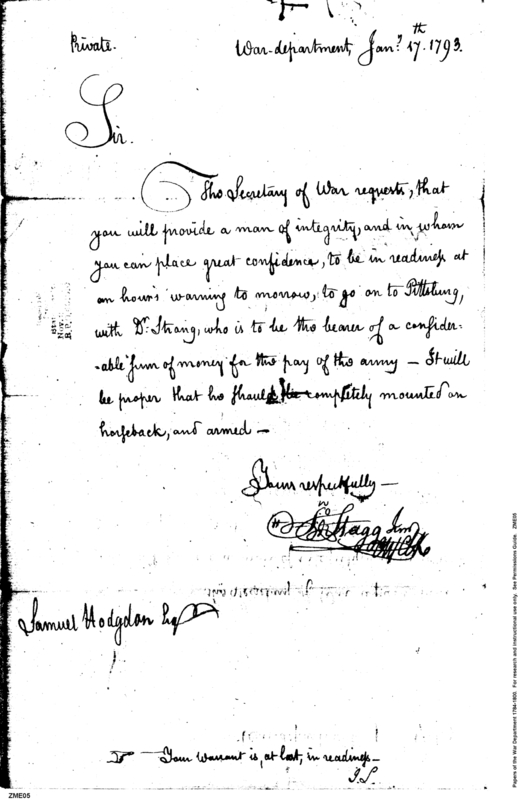 Private.
War-department, Jany. 17th. 1793.
Sir.
The Secretary of War requests, that
you will provide a man of integrity, and in whom
you can place great confidence, to be in readiness at
an hour's warning to morrow, to go on to Pittsburg,
with Dr. Strong, who is to be the bearer of a consider-
-able sum of money for the pay of the army — It will
be proper that he should be completely mounted on
horseback, and armed —
Yours respectfully —
Jno Stagg Junr
Samuel Hodgdon Esq
☞ Your warrant is, at last, in readiness —
J.S.
ZME05
Papers of the War Department 1784-1800. For research and instructional use only. See Permissions Guide. ZME05